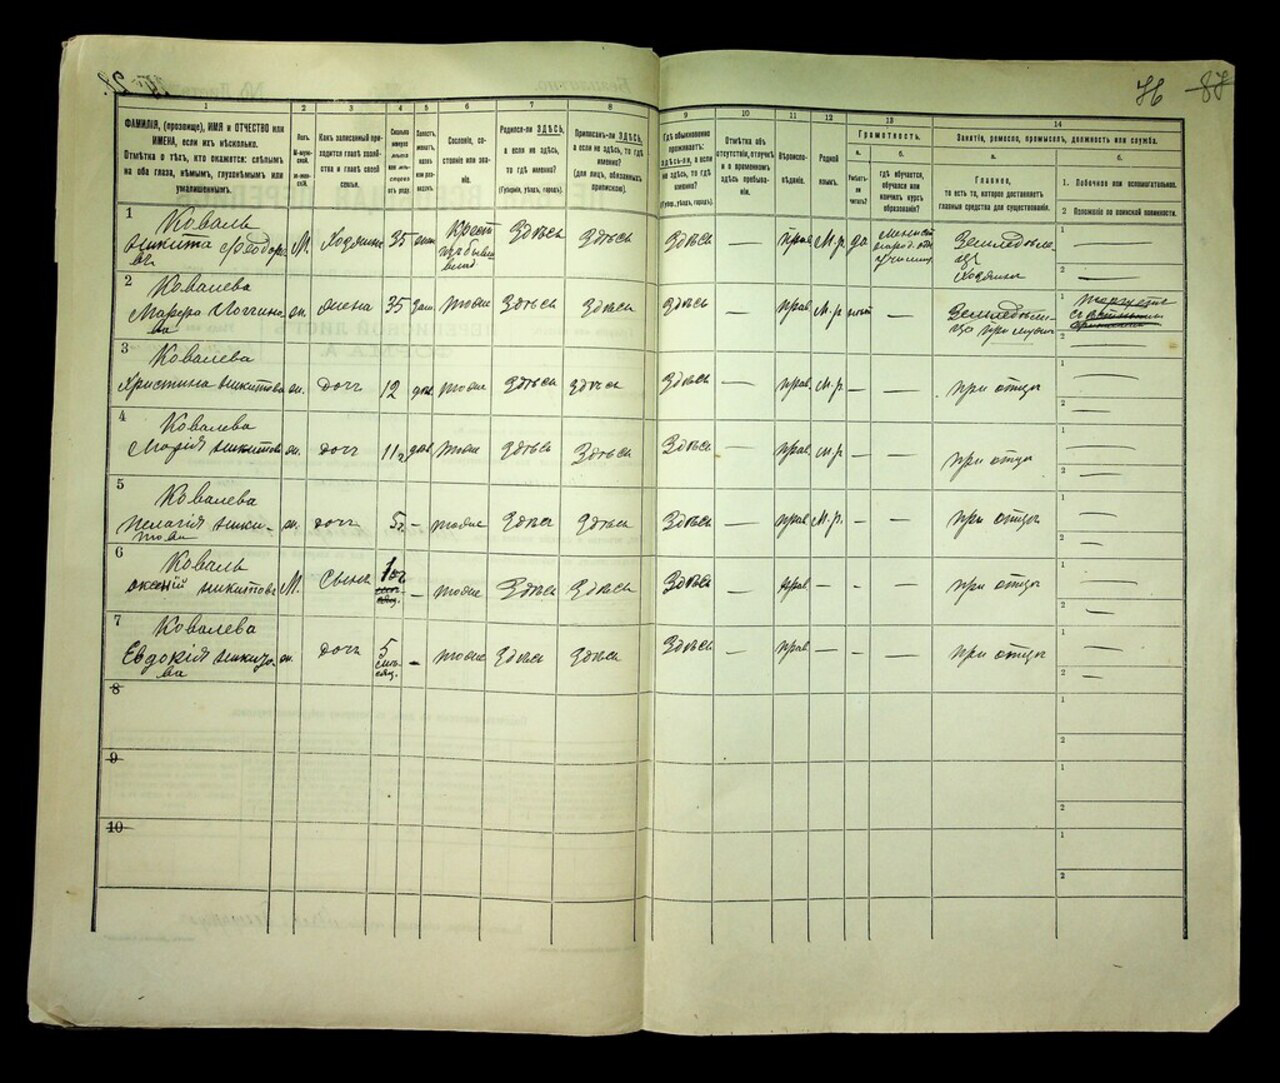 76 87
1 2 3 4 5 6 7 8 9 10 11 12 13 14
ФАМИЛІЯ, (прозвище), ИМЯ и ОТЧЕСТВО или
ИМЕНА, если ихъ нѣсколько.
Отмѣтка о тѣхъ, кто окажется: слѣпымъ
на оба глаза, нѣмымъ, глухонѣмымъ или
умалишеннымъ.
Полъ.
М-мужской.
Ж-женскій.
Какъ записанный приходится
главѣ хозяйства
и главѣ своей
семьи.
Сколько
минуло
лѣтъ
или мѣсяцевъ
отъ роду.
Сословіе, состояніе
или званіе.
Родился-ли ЗДѢСЬ,
а если не здѣсь,
то гдѣ именно?
(Губернія, уѣздъ, городъ).
Приписанъ-ли ЗДѢСЬ,
а если не здѣсь, то гдѣ
именно?
(для лицъ, обязанныхъ
припискою).
Гдѣ обыкновенно
проживаетъ:
здѣсь-ли, а если
не здѣсь, то гдѣ
именно?
(Губер., уѣздъ, городъ).
Отмѣтка объ
отсутствіи, отлучкѣ
и о временномъ
здѣсь пребываніи.
Вѣроисповѣданіе.
Родной
языкъ.
Грамотность.
а.
Умѣетъ-ли
читать?
б.
гдѣ обучается,
обучался или
кончилъ курсъ
образованія?
Занятіе, ремесло, промыселъ, должность или служба.
а.
Главное,
то есть то, которое доставляетъ
главныя средства для существованія.
б.
1. Побочное или вспомогательное.
2 Положеніе по воинской повинности.
1 Коваль
Никита Ѳеодоро-
въ М. Хозяинъ 35 жен. Крест. изъ бывш. влад. Здѣсь Здѣсь Здѣсь — прав. М.р. да Земледѣле-
ца
Хозяинъ 1 — 2 —
2 Ковалева
Марѳа Логгино-
ва ж. жена 35 зам. тоже Здѣсь Здѣсь Здѣсь — прав. М.р. нѣтъ — Земледѣль-
ца при мужѣ 1 2 —
3 Ковалева
Христина Никитова ж. дочь 12 дѣв. тоже Здѣсь Здѣсь Здѣсь — прав. М.р. — — при отцѣ 1 — 2 —
4 Ковалева
Марія Никитова ж. дочь 11 дѣв. тоже Здѣсь Здѣсь Здѣсь — прав. М.р. — — при отцѣ 1 — 2 —
5 Ковалева
Пелагія Ники-
това ж. дочь 5 — тоже Здѣсь Здѣсь Здѣсь — прав. М.р. — — при отцѣ 1 — 2 —
6 Коваль
Никитовъ М. Сынъ 1 — тоже Здѣсь Здѣсь Здѣсь — прав. — — — при отцѣ 1 — 2 —
7 Ковалева
Евдокія Никито-
ва ж. дочь 5 мѣ-
сяц. — тоже Здѣсь Здѣсь Здѣсь — прав. — — — при отцѣ 1 — 2 —
8 1 2
9 1 2
10 1 2